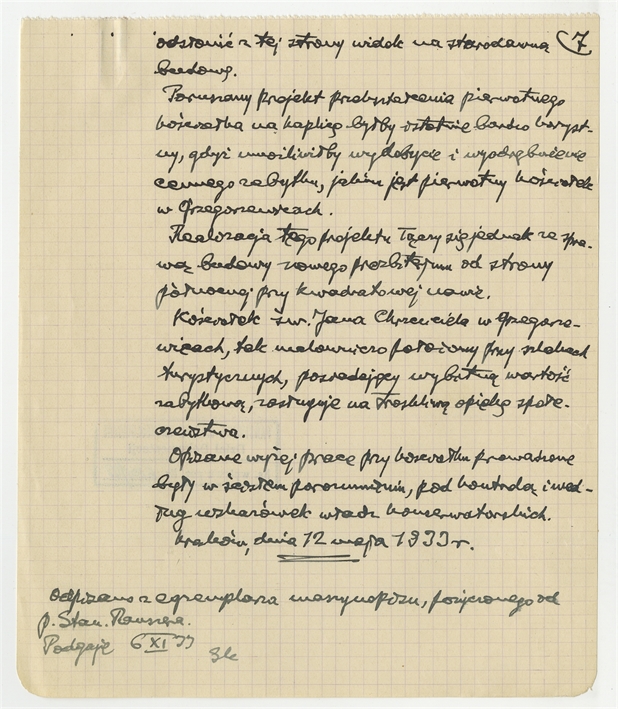 7
odsłonić z tej strony widok na starodawną
budowę.
Poruszany projekt przekształcenia pierwotnego
kościołka na kaplicę byłby ostatnie bardzo korzyst-
ny, gdyż umożliwiłby wydobycie i wyodrębnienie
cennego zabytku, jakim jest pierwotny kościołek
w Grzegorzewicach.
Realizacja tego projektu łączy się jednak ze spra-
wą budowy nowego prezbiterium od strony
północnej przy kwadratowej nawie.
Kościołek św. Jana Chrzciciela w Grzegorze-
wicach, tak malowniczo położony przy szlakach
turystycznych, posiadający wybitną wartość
zabytkową, zasługuje na troskliwą opiekę społe-
czeństwa.
Opisane wyżej prace przy kościołku prowadzone
były w ścisłem porozumieniu, pod kontrolą i wed-
ług wskazówek władz konserwatorskich.
Kraków, dnia 12 maja 1933 r.
Odpisano z egzemplarza maszynopisu, pożyczonego od
p. Stan.
6 XI 33